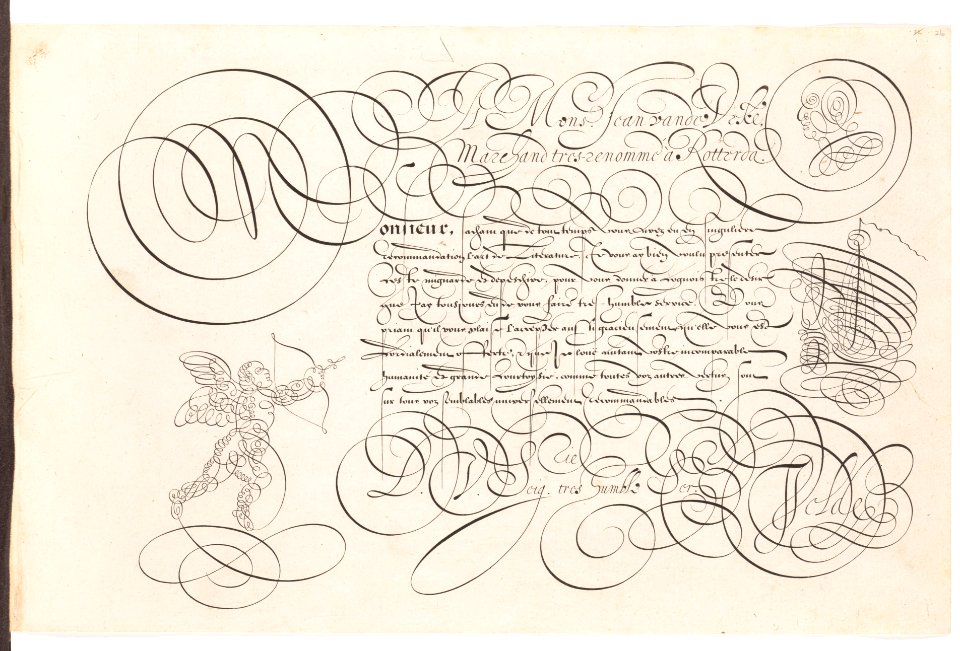 A Mons.r Jean vande Velde
Marchand tres-renommé à Rotterda.
Monsieur, sachant que de tout temps vous avez eu en singuliere
recommandation l'art de Literature, Je vous ay bien voulu presenter
ceste mignarde et depeschive, pour vous donner a cognoistre le desir
que j'ay tousjours eu de vous faire tres humble service. Vous
priant qu'il vous plaise l'accepter aussi gracieusement qu'elle vous est
cordialement offerte, et que Je loue autant vostre incomparable
humanité et grande courtoysie, comme toutes voz autres vertus, sont
sur tous voz semblables universellement recommandables
De V. Seig.rie tres humble Ser.r
Velde